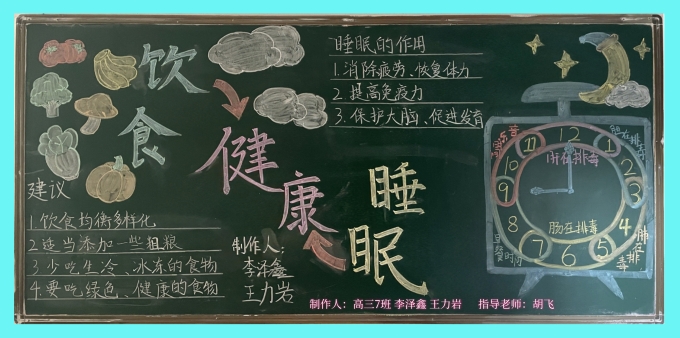 饮
食
健
康
睡
眠
建议
1.饮食均衡多样化
2.适当添加一些粗粮
3.少吃生冷、冰冻的食物
4.要吃绿色、健康的食物
制作人:
李泽鑫
王力岩
睡眠的作用
1.消除疲劳、恢复体力
2.提高免疫力
3.保护大脑,促进发育
12
1
2
3
4
5
6
7
8
9
10
11
肝在排毒
肠在排毒
胆在排毒
肺在排毒
制作人:高三7班 李泽鑫 王力岩 指导老师:胡飞